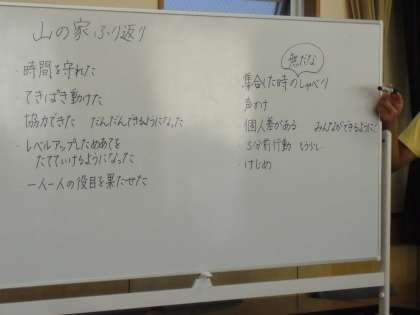 山の家ふり返り
・時間を守れた
てきぱき動けた
協力できた だんだんできるようになった
・レベルアップしためあてを
たてていけるようになった
・一人一人の役目を果たせた
無だな
集合した時のしゃべり
・声かけ
・個人差がある みんなができるように!
・5分前行動
・けじめ